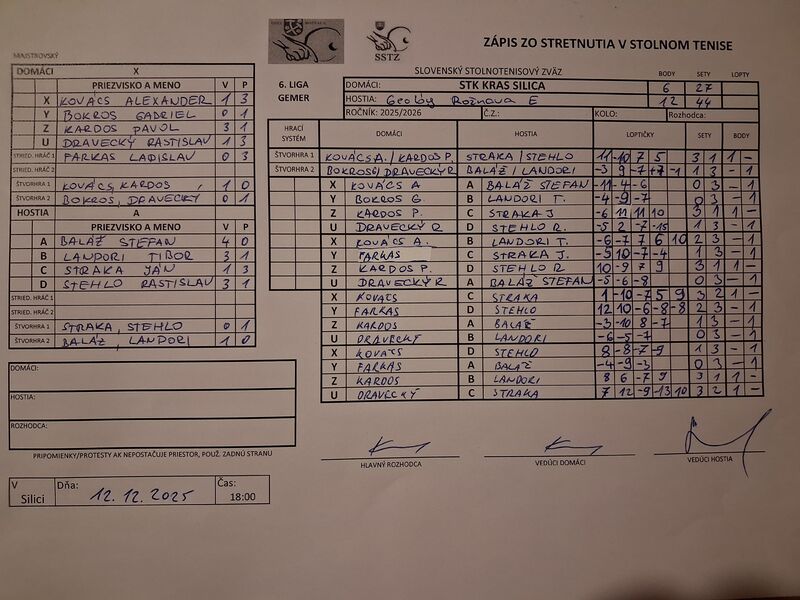 SSTZ
ZÁPIS ZO STRETNUTIA V STOLNOM TENISE
MAJSTROVSKÝ
DOMÁCI X
PRIEZVISKO A MENO V P
X KOVÁCS ALEXANDER 1 3
Y BOKROS GABRIEL 0 1
Z KARDOS PAVOL 3 1
U DRAVECKÝ RASTISLAV 1 3
STRIED. HRÁČ 1 FARKAS LADISLAV 0 3
STRIED. HRÁČ 2
ŠTVORHRA 1 KOVÁCS, KARDOS 1 0
ŠTVORHRA 2 BOKROS, DRAVECKÝ 0 1
HOSTIA A
PRIEZVISKO A MENO V P
A BALÁŽ ŠTEFAN 4 0
B LANDORI TIBOR 3 1
C STRAKA JÁN 1 3
D STEHLO RASTISLAV 3 1
STRIED. HRÁČ 1
STRIED. HRÁČ 2
ŠTVORHRA 1 STRAKA, STEHLO 0 1
ŠTVORHRA 2 BALÁŽ, LANDORI 1 0
DOMÁCI:
HOSTIA:
ROZHODCA:
PRIPOMIENKY/PROTESTY AK NEPOSTAČUJE PRIESTOR, POUŽ. ZADNÚ STRANU
V Silici Dňa: 12.12.2025 Čas: 18:00
SLOVENSKÝ STOLNOTENISOVÝ ZVÄZ
BODY SETY LOPTY
6. LIGA GEMER
DOMÁCI: STK KRAS SILICA 6 27
HOSTIA: Geolby Rožňava E 12 44
ROČNÍK: 2025/2026 Č.Z.: KOLO: Rozhodca:
HRACÍ SYSTÉM DOMÁCI HOSTIA LOPTIČKY SETY BODY
ŠTVORHRA 1 KOVÁCS A. / KARDOS P. STRAKA / STEHLO 11 -10 7 5 3 1 1 -
ŠTVORHRA 2 BOKROS G / DRAVECKÝ R BALÁŽ / LANDORI -3 9 -7 1 - 1
X KOVÁCS A A BALÁŽ ŠTEFAN -11 -4 -6 0 3 - 1
Y BOKROS G. B LANDORI T. -4 -9 -7 0 3 - 1
Z KARDOS P. C STRAKA J -6 11 11 10 3 1 1 -
U DRAVECKÝ R D STEHLO R. -5 2 -7 -15 1 3 - 1
X KOVÁCS A. B LANDORI T. -6 -7 7 6 10 2 3 - 1
Y FARKAS C STRAKA J. -5 10 -7 -4 1 3 - 1
Z KARDOS P. D STEHLO R 10 -9 7 9 3 1 1 -
U DRAVECKÝ R A BALÁŽ ŠTEFAN -5 -6 -8 0 3 - 1
X KOVÁCS C STRAKA 1 -10 -7 5 9 3 2 1 -
Y FARKAS D STEHLO 12 10 -6 -8 -8 2 3 - 1
Z KARDOS A BALÁŽ -3 -10 8 -7 1 3 - 1
U DRAVECKÝ B LANDORI -6 -5 -7 0 3 - 1
X KOVÁCS D STEHLO 8 -8 -7 -9 1 3 - 1
Y FARKAS A BALÁŽ -4 -9 -3 0 3 - 1
Z KARDOS B LANDORI 8 6 -7 9 3 1 1 -
U DRAVECKÝ C STRAKA 7 12 -9 -13 10 3 2 1 -
HLAVNÝ ROZHODCA VEDÚCI DOMÁCI VEDÚCI HOSTIA